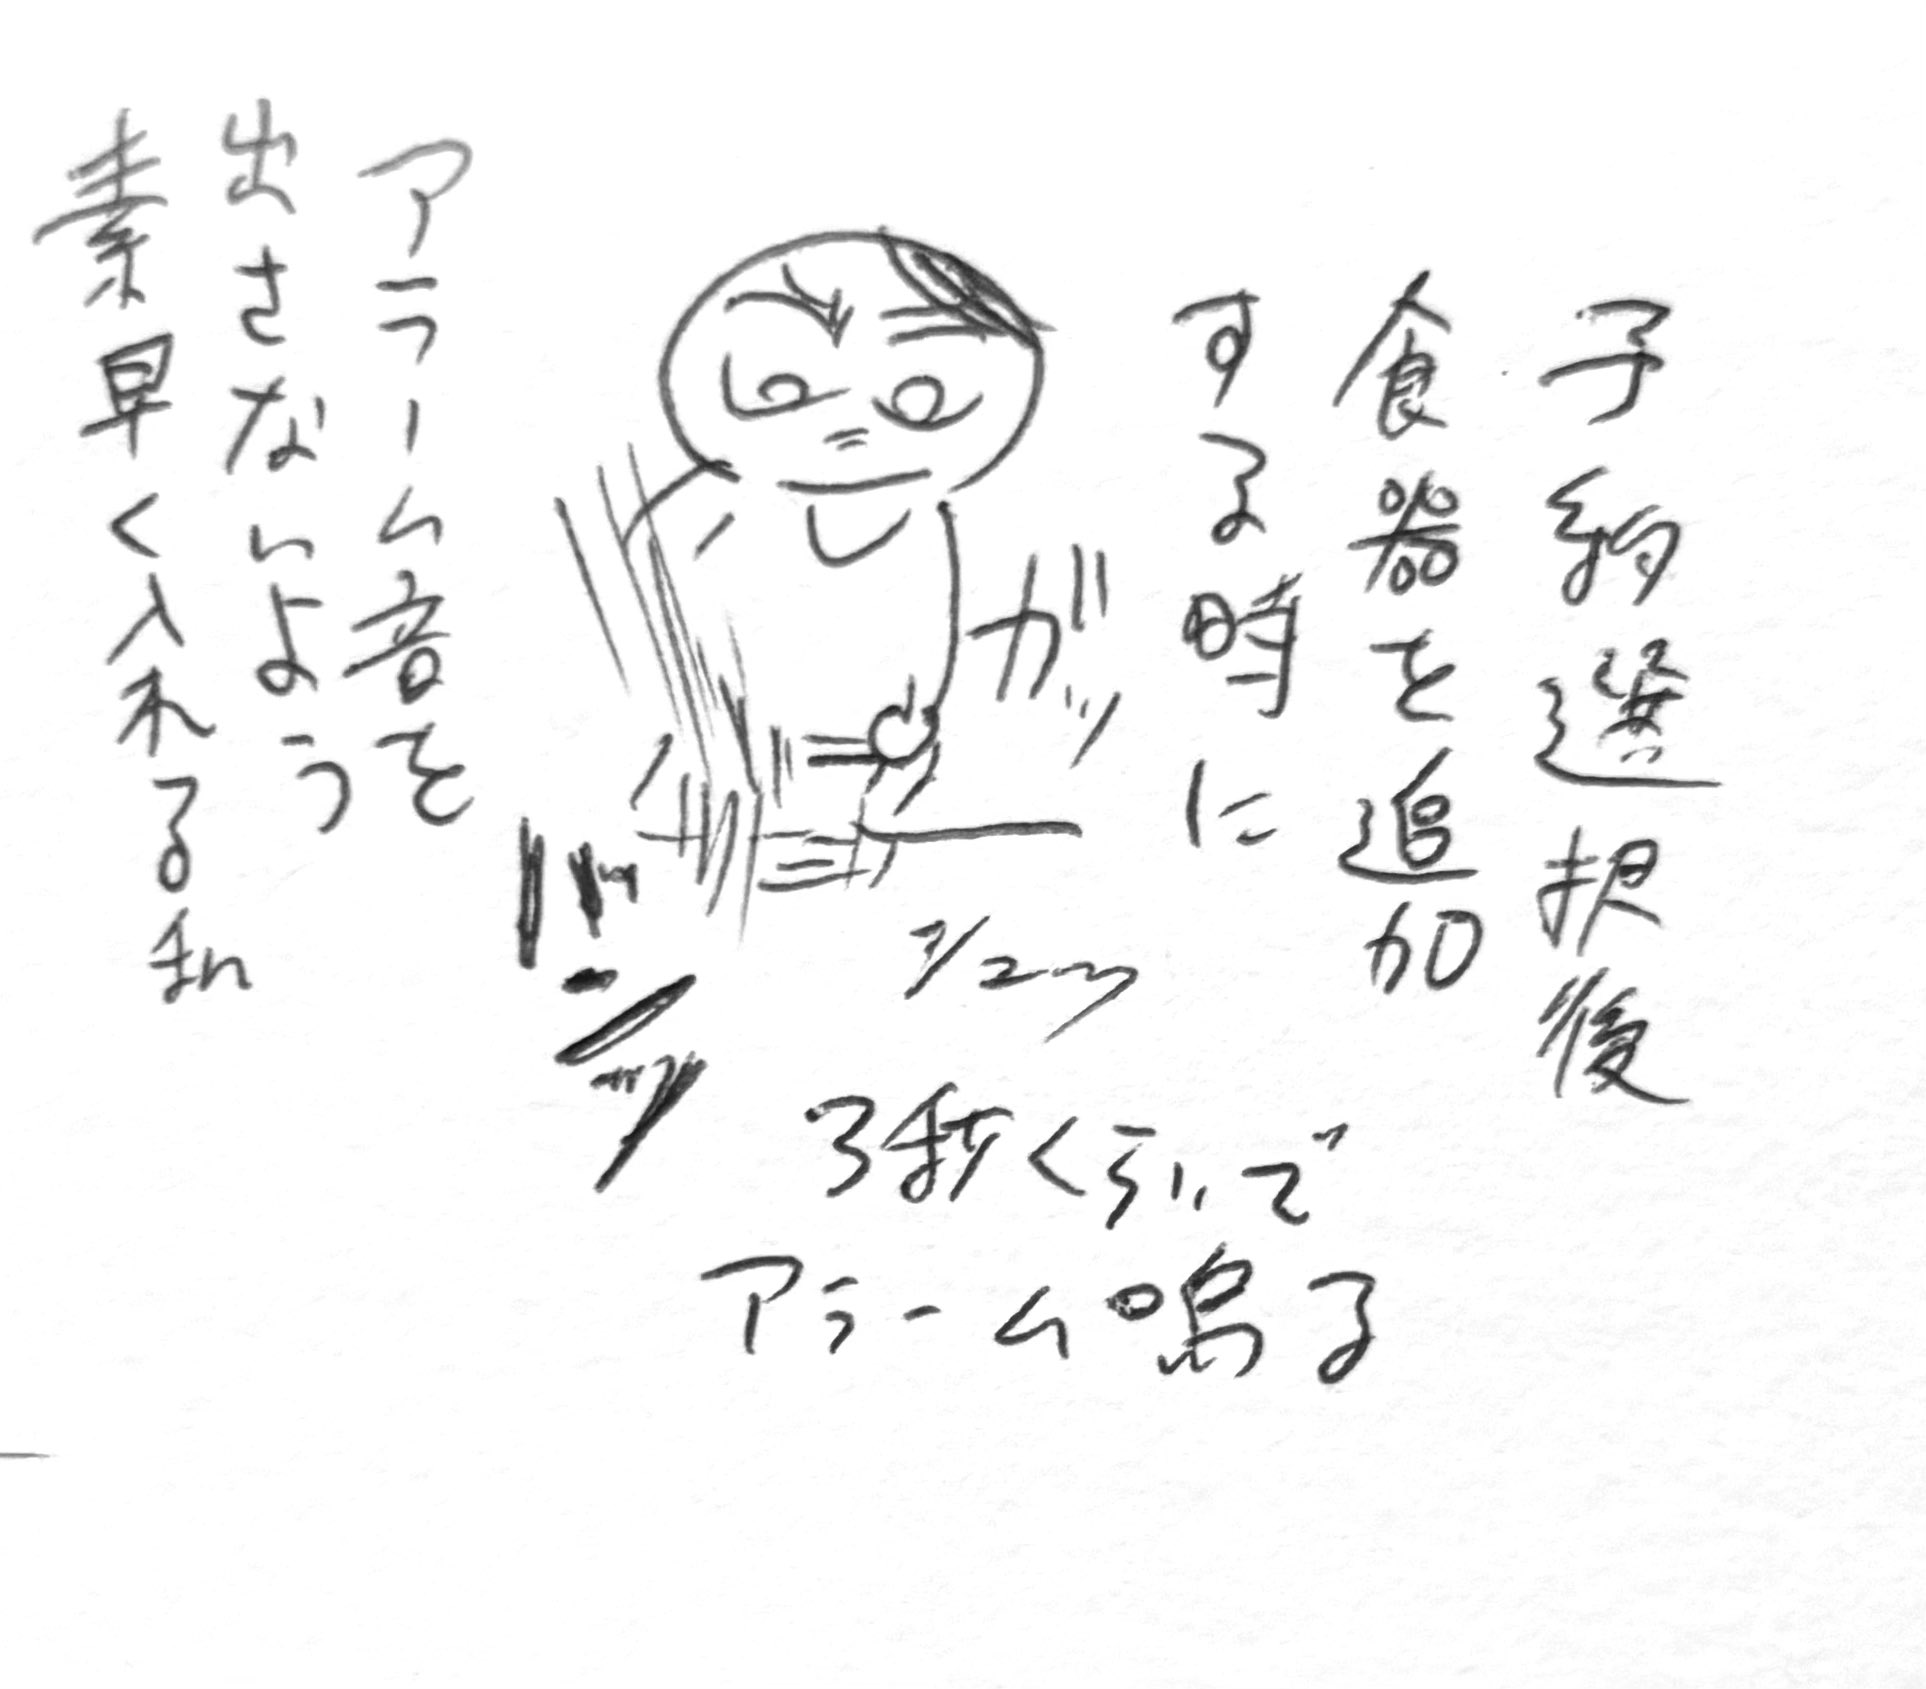 予約選択後
食器を追加
する時に
ガッ
アラーム音を
出さないよう
素早く入れる私
バンッ
シュッ
3秒くらいで
アラーム鳴る